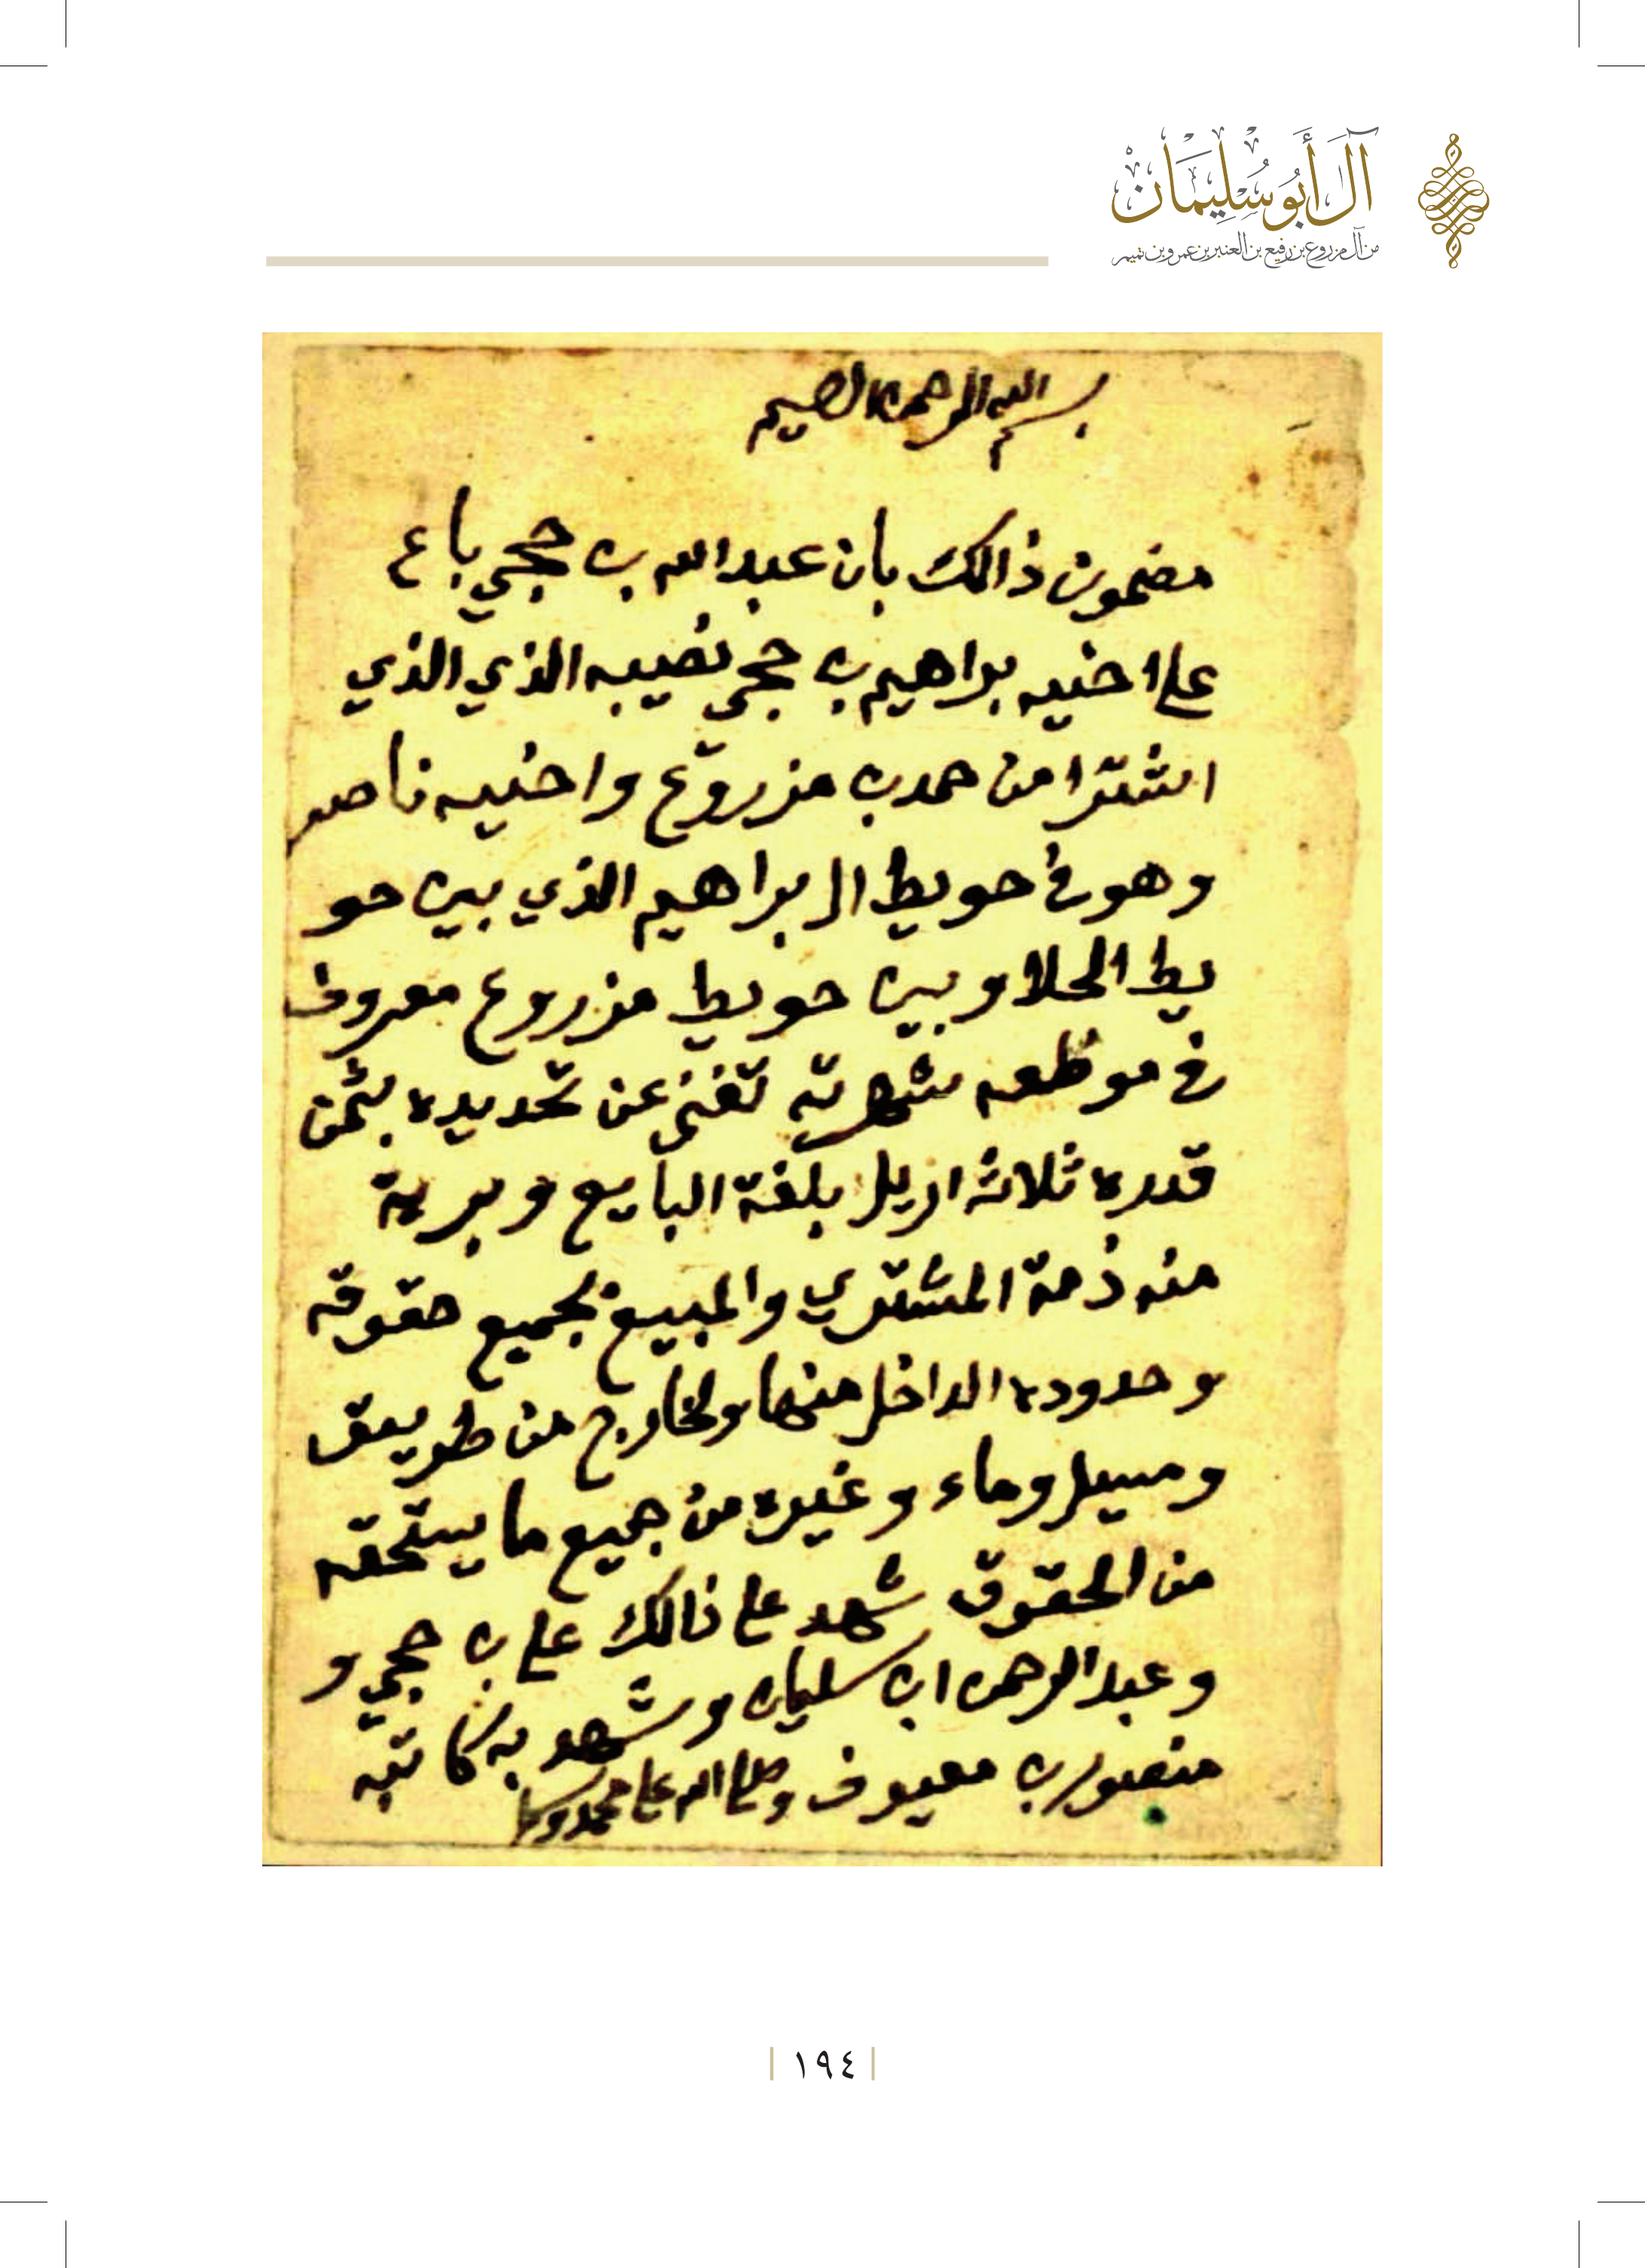 آل أبو سليمان
من آل مزروع بن رفيع بن العنبر بن عمرو بن تميم
بسم الله الرحمن الرحيم
مضمون ذالك بان عبدالله بن حجي باع
على اخيه براهيم بن حجي نصيبه الذي الذي
اشترا من حمد بن مزروع واخيه ناصر
وهو في حويط ال براهيم الذي بين حو
يط الحلا وبين حويط مزروع معروف
في موظعه شهرته تغني عن تحديده بثمن
قدره ثلاثه اريل بلغة البايع وبرية
منه ذمة المشتري والمبيع بجميع حقوقه
وحدوده الداخل منها ولخارج من طريق
ومسيل وماء وغيره من جميع ما يستحقه
من الحقوق شهد على ذالك علي بن حجي و
وعبدالرحمن ابن سليمان وشهد به كاتبه
منصور بن معيوف وصلى الله على محمد وسلم
١٩٤